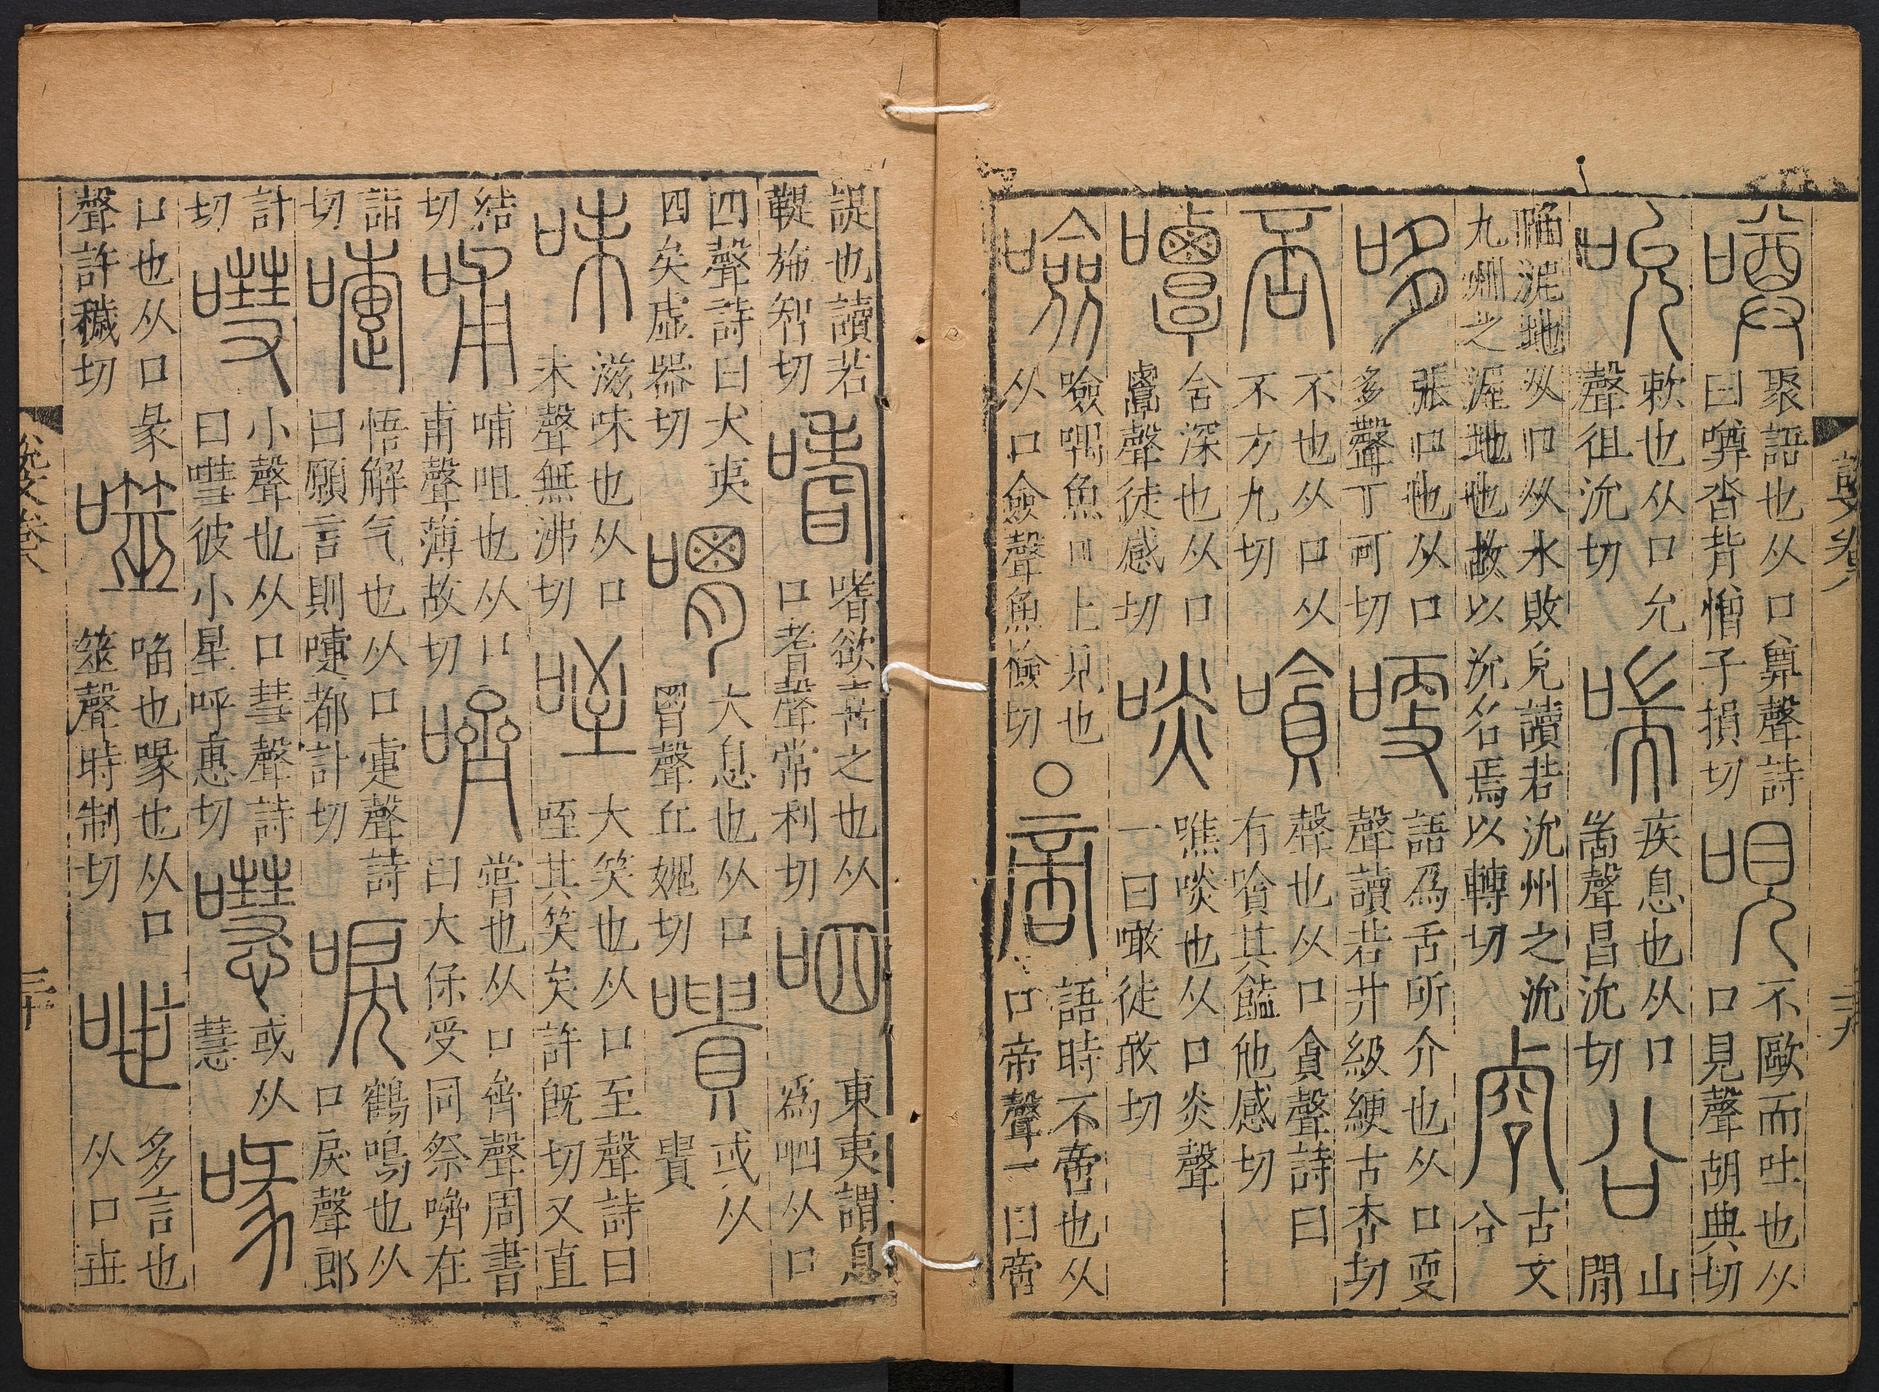 噂
聚語也从口尊聲詩
曰噂沓背憎子損切
哯
不歐而吐也从
口見聲胡典切
吮
欶也从口允
聲徂沇切
喘
疾息也从口
耑聲昌沇切
㕣
山
閒
陷泥地从口从水敗皃讀若沇州之沇
九州之渥地也故以沇名焉以轉切
古文
㕣
哆
張口也从口
多聲丁可切
哽
語爲舌所介也从口㪅
聲讀若井級綆古杏切
否
不也从口从
不方九切
嗿
聲也从口貪聲詩曰
有嗿其饁他感切
嘾
含深也从口
覃聲徒感切
啖
噍啖也从口炎聲
一曰噉徒敢切
噞
噞喁魚口上見也
从口僉聲魚檢切
○
啻
語時不啻也从
口帝聲一曰啻
諟也讀若
鞮施智切
嗜
嗜欲喜之也从
口耆聲常利切
呬
東夷謂息
爲呬从口
四聲詩曰犬夷
四矣虛器切
喟
大息也从口
胃聲丘媿切
嘳
或从
貴
味
滋味也从口
未聲無沸切
咥
大笑也从口至聲詩曰
咥其笑矣許旣切又直
結
切
哺
哺咀也从口
甫聲薄故切
嚌
嘗也从口齊聲周書
曰大保受同祭嚌在
詣
切
嚏
悟解气也从口疐聲詩
曰願言則嚏都計切
唳
鶴鳴也从
口戾聲郎
計
切
嘒
小聲也从口彗聲詩
曰嘒彼小星呼惠切
嚖
或从
慧
喙
口也从口彖
聲許穢切
噬
啗也喙也从口
筮聲時制切
呭
多言也
从口世